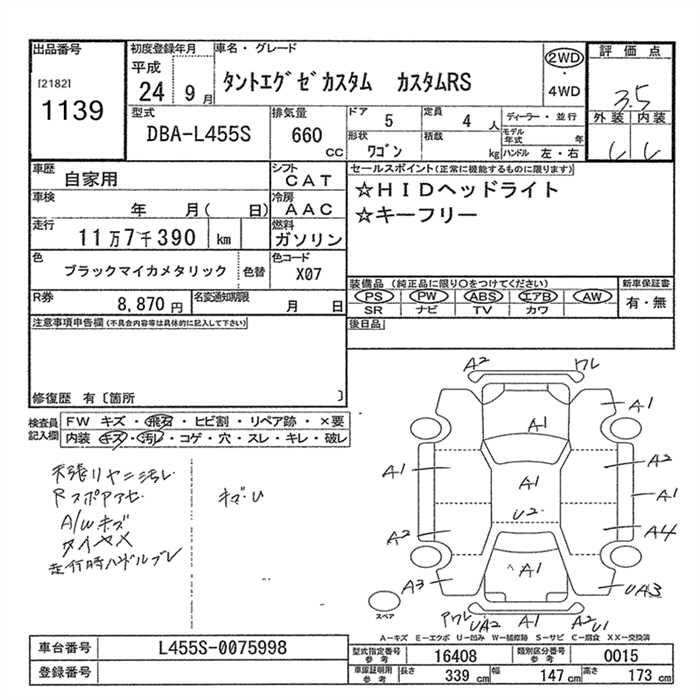 出品番号
[2182]
1139
初度登録年月
平成
24 9月
車名・グレード
タントエグゼカスタム カスタムRS
2WD
・
4WD
評価点
3.5
外装 内装
型式
DBA-L455S
排気量
660
CC
ドア 5
定員 4 人
形状 ワゴン
積載 kg
ディーラー・並行
モデル年式 年
ハンドル 左・右
車歴
自家用
シフト
CAT
車検
年 月( 日)
冷房
AAC
走行
11万7千390 km
燃料
ガソリン
色
ブラックマイカメタリック
色替
色コード
X07
R券
8,870円
名変通知期限
月 日
セールスポイント(正常に機能するものに限ります)
☆HIDヘッドライト
☆キーフリー
装備品 (純正品に限り○をつけてください)
新車保証書
PS PW ABS エアB AW
有・無
SR ナビ TV カワ
後日品
注意事項申告欄(不具合内容等は具体的に記入して下さい)
修復歴 有〔箇所 〕
検査員
記入欄
FW キズ・飛石・ヒビ割・リペア跡・×要
内装 キズ・汚れ・コゲ・穴・スレ・キレ・破レ
天張りヤニ汚レ
Rスポアクセ
A/Wキズ
タイヤメ
走行時ハンドルブレ
キズ・U
A2 ワレ
A1
A1
A1
A2
A1
A1
U2
A2
A4
A3
A1
UA3
スペア
アワレ
UA2
A1
A2
U1
A-キズ E-エクボ U-凹み W-補修跡 S-サビ C-腐食 XX-交換済
車台番号
L455S-0075998
登録番号
型式指定番号
参考
16408
類別区分番号
参考
0015
車庫証明用
参考
長さ 339 cm
幅 147 cm
高さ 173 cm